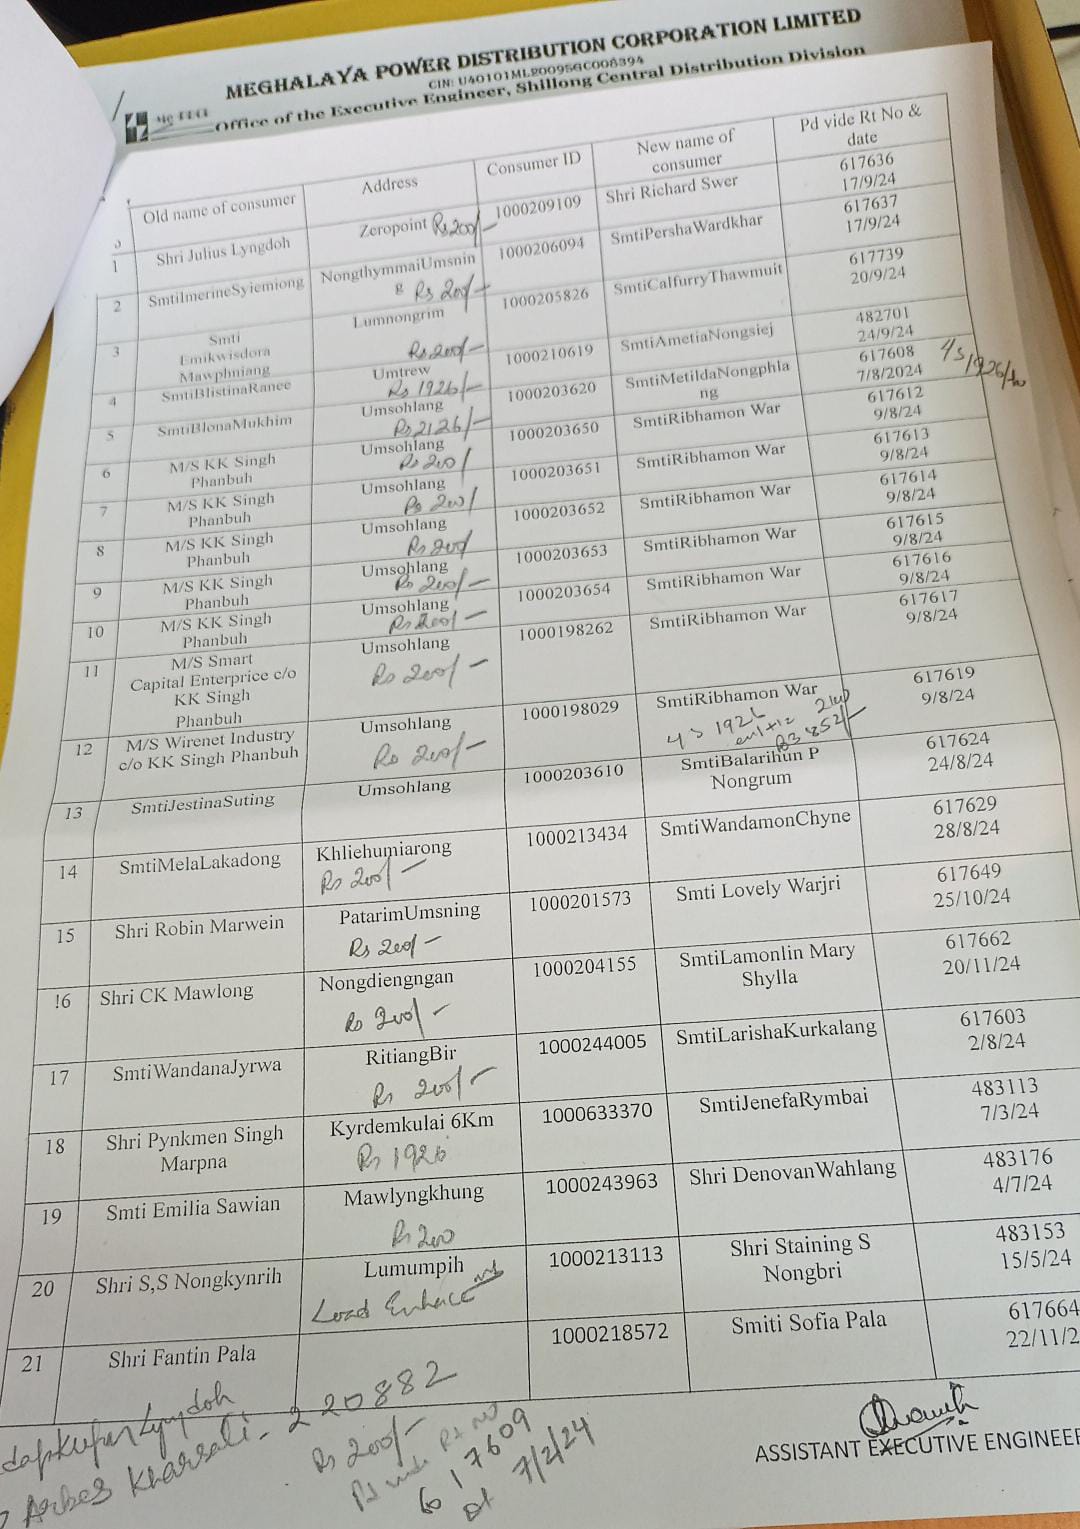 MEGHALAYA POWER DISTRIBUTION CORPORATION LIMITED
CIN: U40101ML2009SGC008394
Office of the Executive Engineer, Shillong Central Distribution Division
Old name of consumer Address Consumer ID New name of consumer Pd vide Rt No & date
1 Shri Julius Lyngdoh Zeropoint Rs 200/- 1000209109 Shri Richard Swer 617636 17/9/24
2 SmtiImerineSyiemiong NongthymmaiUmsning Rs 200/- 1000206094 SmtiPershaWardkhar 617637 17/9/24
3 Smti Emikwisdora Mawphniang Lumnongrim Rs 200/- 1000205826 SmtiCalfurryThawmuit 617739 20/9/24
4 SmtiBlistinaRanee Umtrew Rs 1926/- 1000210619 SmtiAmetiaNongsiej 482701 24/9/24
5 SmtiBlonaMukhim Umsohlang Rs 2126/- 1000203620 SmtiMetildaNongphlang 617608 7/8/2024
6 M/S KK Singh Phanbuh Umsohlang Rs 200/ 1000203650 SmtiRibhamon War 617612 9/8/24
7 M/S KK Singh Phanbuh Umsohlang Rs 200/ 1000203651 SmtiRibhamon War 617613 9/8/24
8 M/S KK Singh Phanbuh Umsohlang Rs 200/ 1000203652 SmtiRibhamon War 617614 9/8/24
9 M/S KK Singh Phanbuh Umsohlang Rs 200/- 1000203653 SmtiRibhamon War 617615 9/8/24
10 M/S KK Singh Phanbuh Umsohlang Rs 200/- 1000203654 SmtiRibhamon War 617616 9/8/24
11 M/S Smart Capital Enterprice c/o KK Singh Phanbuh Umsohlang Rs 200/- 1000198262 SmtiRibhamon War 617617 9/8/24
12 M/S Wirenet Industry c/o KK Singh Phanbuh Umsohlang Rs 200/- 1000198029 SmtiRibhamon War 617619 9/8/24
13 SmtiJestinaSuting Umsohlang 1000203610 SmtiBalarihun P Nongrum 617624 24/8/24
14 SmtiMelaLakadong Khliehumiarong Rs 200/- 1000213434 SmtiWandamonChyne 617629 28/8/24
15 Shri Robin Marwein PatarimUmsning Rs 200/- 1000201573 Smti Lovely Warjri 617649 25/10/24
!6 Shri CK Mawlong Nongdiengngan Rs 200/- 1000204155 SmtiLamonlin Mary Shylla 617662 20/11/24
17 SmtiWandanaJyrwa RitiangBir Rs 200/- 1000244005 SmtiLarishaKurkalang 617603 2/8/24
18 Shri Pynkmen Singh Marpna Kyrdemkulai 6Km Rs 1926 1000633370 SmtiJenefaRymbai 483113 7/3/24
19 Smti Emilia Sawian Mawlyngkhung Rs 200 1000243963 Shri DenovanWahlang 483176 4/7/24
20 Shri S,S Nongkynrih Lumumpih Load Enhacement 1000213113 Shri Staining S Nongbri 483153 15/5/24
21 Shri Fantin Pala 1000218572 Smiti Sofia Pala 617664 22/11/2
Lyngdoh
Kharsati - 220882
Rs 200/-
617609
7/2/24
ASSISTANT EXECUTIVE ENGINEER